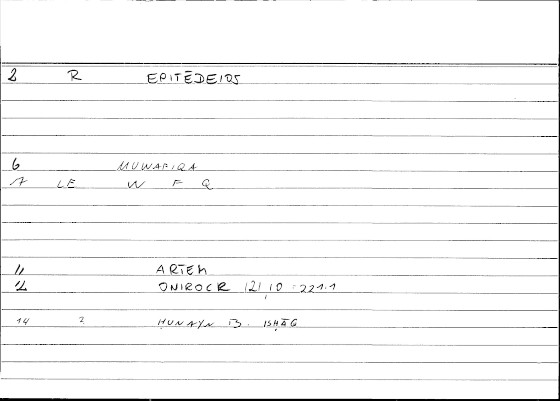 2 R EPITĒDEIOS
6 MUWAFIQA
7 LE W F Q
11 ARTEM
12 ONIROCR 121,10 = 221.1
14 2 ḤUNAYN B. ISḤĀG